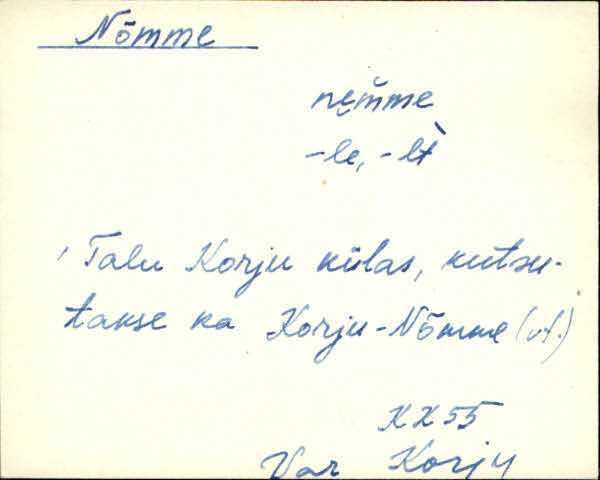 Nõmme
ne̮m̆me
-le, -lt̀
Talu Korju külas, kutsu-
takse ka Korju-Nõmme (vt.)
KK 55
Var Korju